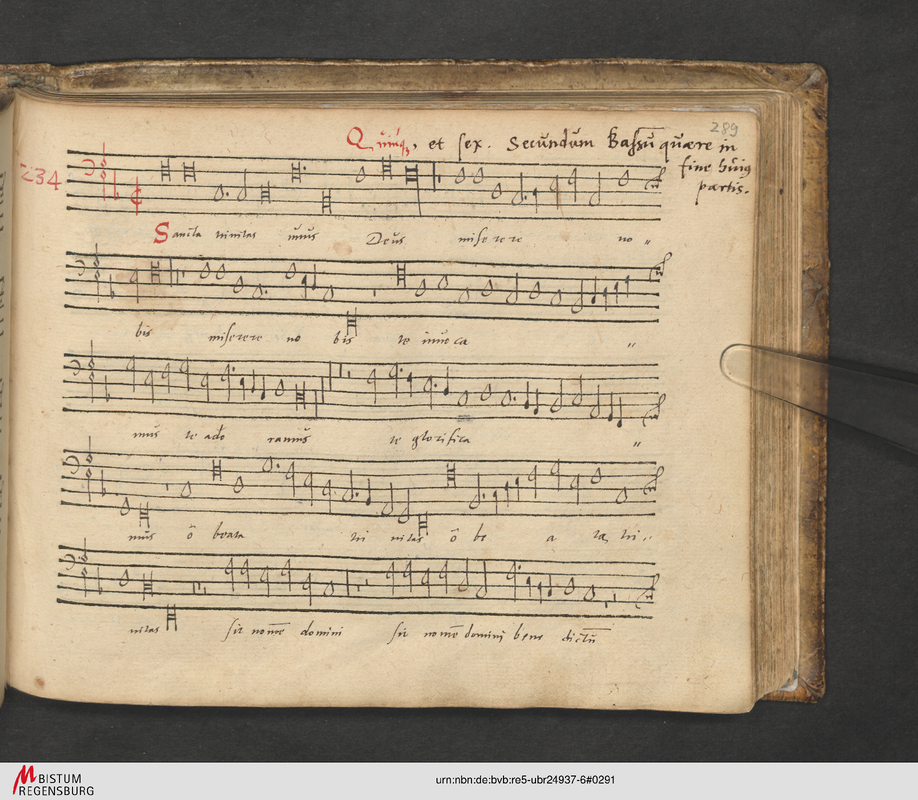 289
Quinq, et sex. Secundum Bassū quære in
fine huiq
partis.
234
Sancta trinitas unus Deus miserere no
bis miserere no bis te invoca
mus te ado ramus te glorifica
mus ô beata tri nitas ô be a ta tri
nitas sit nomē domini sit nomē domini bene dictū
BISTUM
REGENSBURG
urn:nbn:de:bvb:re5-ubr24937-6#0291